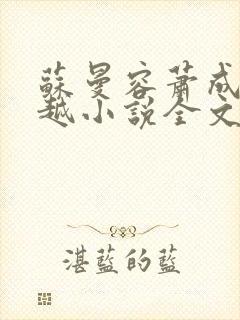 蘇曼容蕭成
越小說全文
湛藍的藍